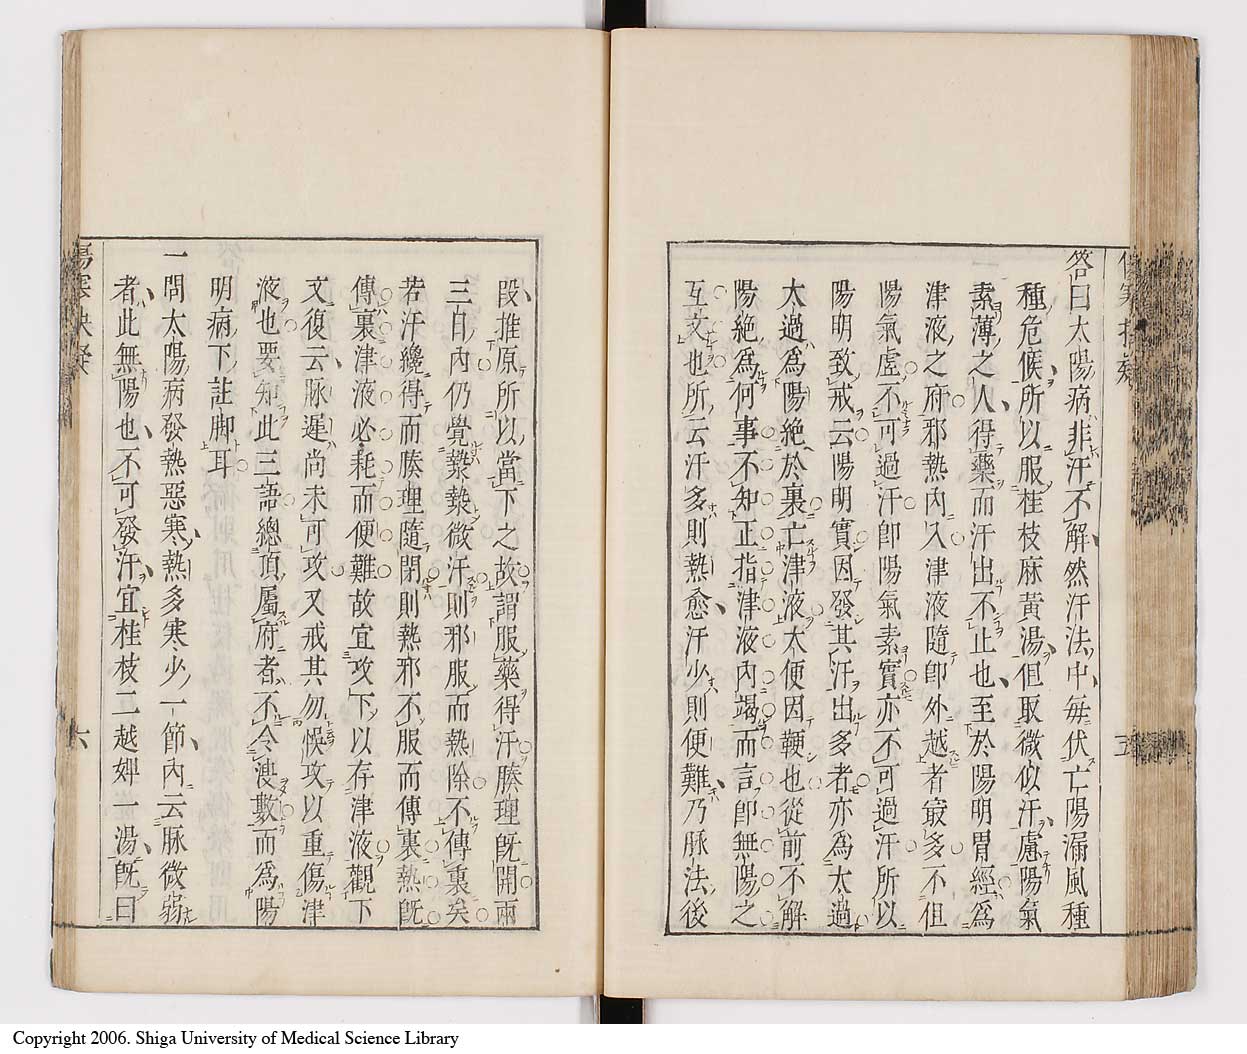 答曰太陽病非汗不解然汗法中毎伏亡陽漏風種
種危候所以服桂枝麻黃湯但取微似汗慮陽氣
素薄之人得藥而汗出不止也至於陽明胃經爲
津液之府邪熱內入津液隨卽外越者寂多不但
陽氣虛不可過汗卽陽氣素實亦不可過汗所以
陽明致戒云陽明實因發其汗出多者亦爲太過
太過爲陽絶於裏亡津液大便因鞕也從前不解
陽絶爲何事不知正指津液內竭而言卽無陽之
互文也所云汗多則熱愈汗少則便難乃脉法後
段推原所以當下之故謂服藥得汗腠理旣開兩
三日內仍覺漐漐微汗則邪服而熱除不傳裏矣
若汗纔得而腠理隨閉則熱邪不服而傳裏熱旣
傳裏津液必耗而便難故宜攻下以存津液觀下
文復云脉遲尚未可攻又戒其勿悞攻以重傷津
液也要知此三語總頂屬府者不令溲數而爲陽
明病下註脚耳
一問太陽病發熱惡寒熱多寒少一節內云脉微弱
者此無陽也不可發汗宜桂枝二越婢一湯旣曰
傷寒抉疑
六
Copyright 2006. Shiga University of Medical Science Library